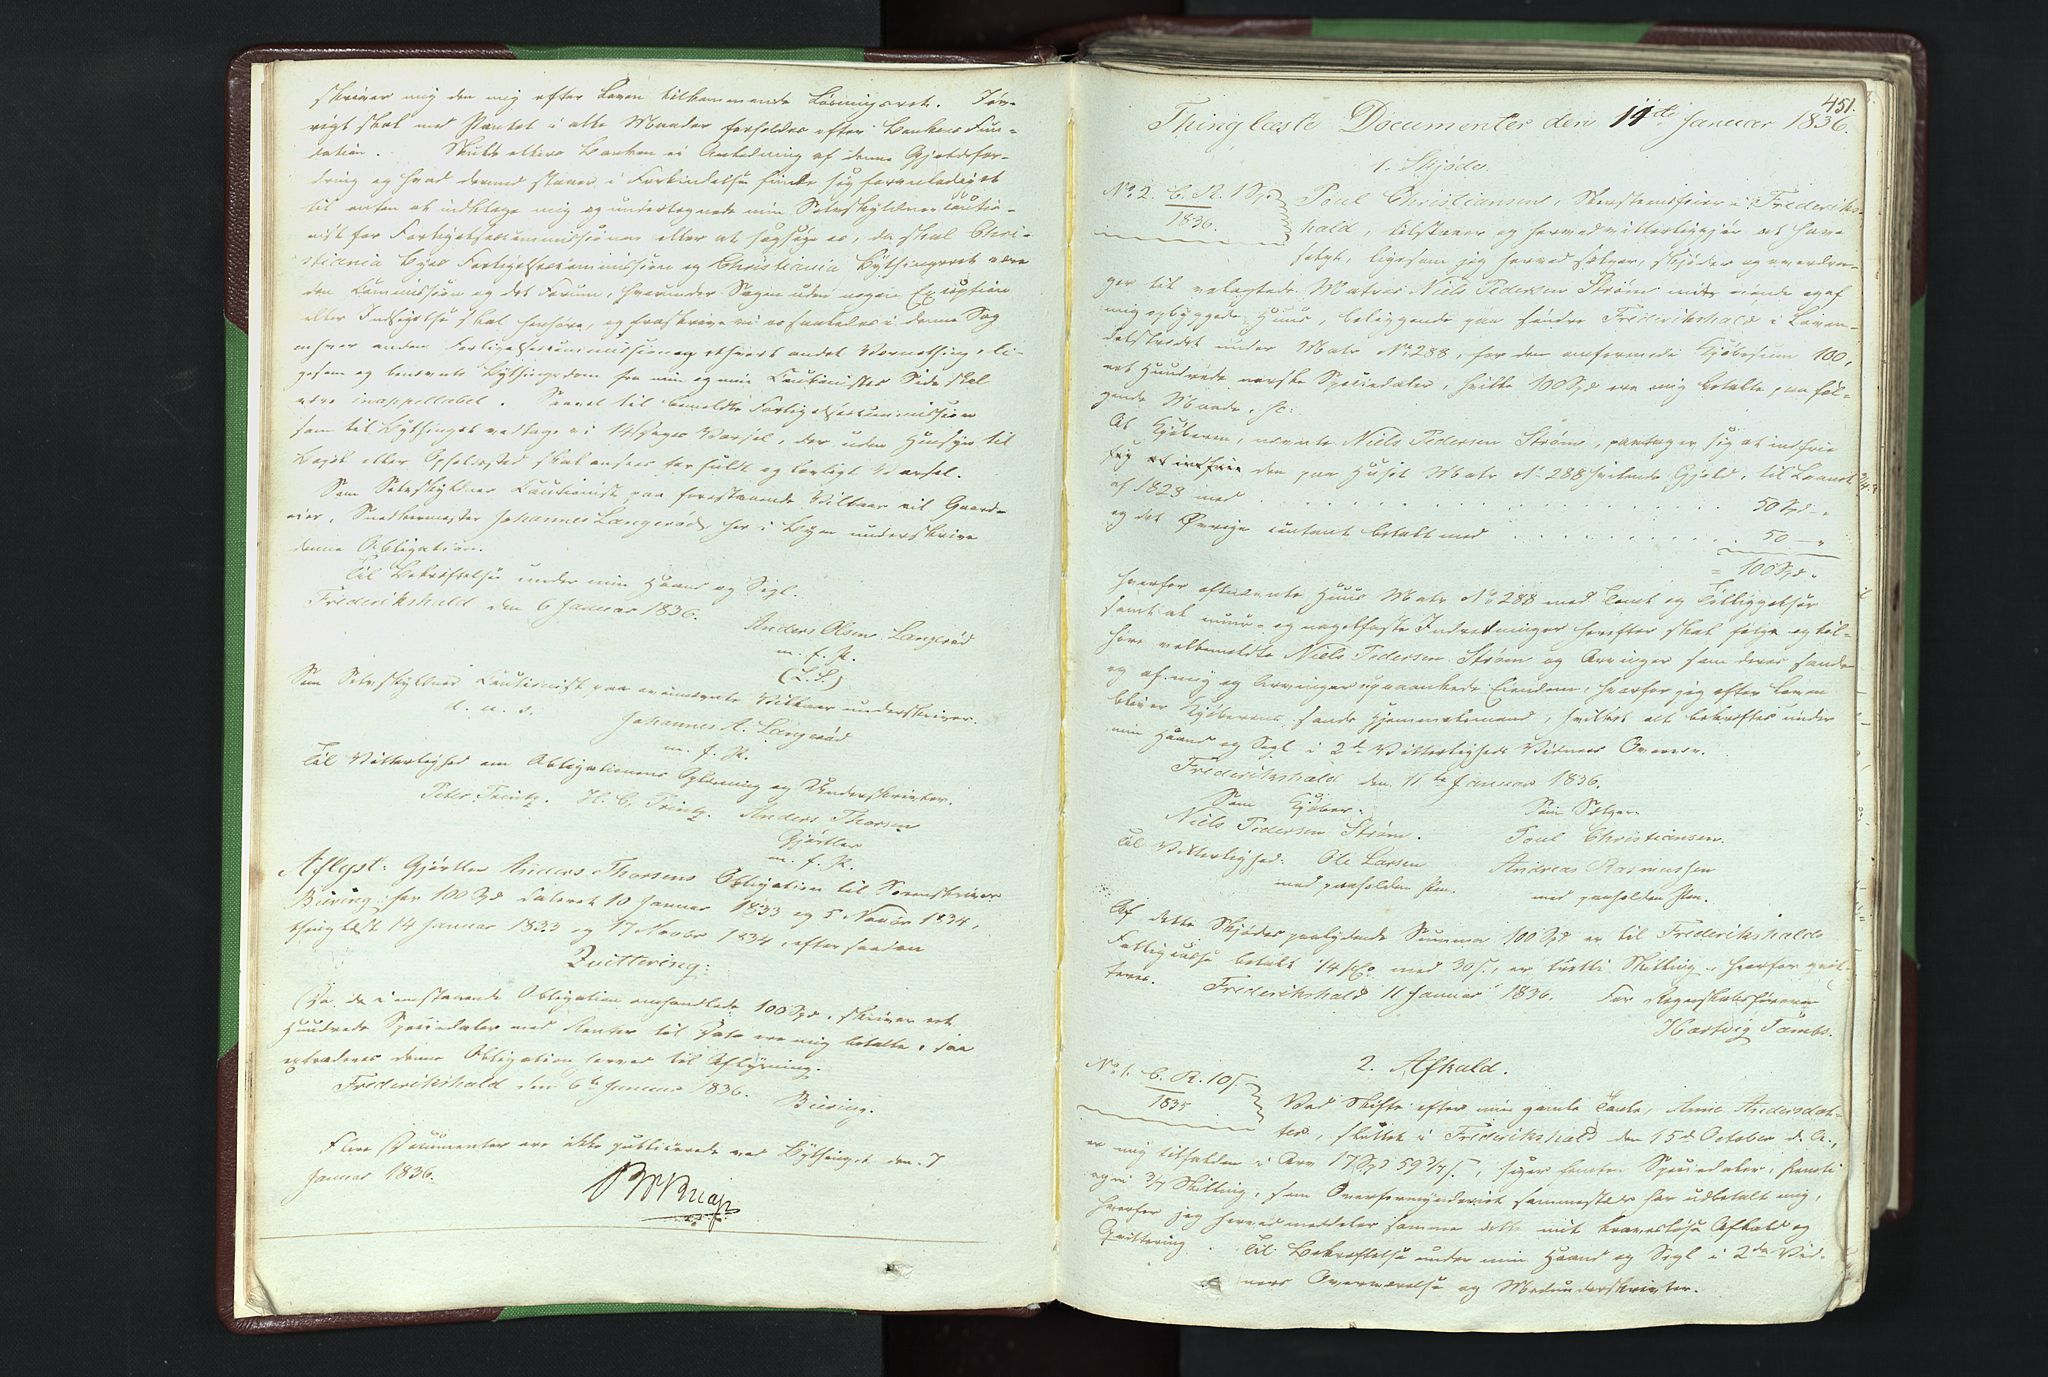 skriver mig den mig efter Loven tilkommende Løsningsret. Iøv-
rigt skal med Pantet i alle Maader forholdes efter Bankens Fun-
dation. Skulde ellers Banken ei Anledning af denne Gjældsfor-
dring og hvad dermed staaer i Forbindelse finde sig foranlediget
til enten at indklage mig og undertegnede min Selvskyldner Cautio-
nist for Forligelsescommissionen eller at sagsøge os, da skal Chri-
stiania Byes Forligelsescommission og Christiania Bythingsret være
den Commission og det Forum, hvorunder Sagen uden nogen Exception
eller Indsigelse skal henhøre, og fraskrive vi os saaledes i denne Sag
enhver anden Forligelsescommission og ethvert andet Værnething, li-
gesom og benævnte Bythingsdom fra min og min Cautionistes Side skal
være inappellabel. Saavel til bemeldte Forligelsescommission
som til Bythinget vedtage vi 14 Dages Varsel, der uden Hensyn til
Bopæl eller Opholdssted skal ansees for fuldt og lovligt Varsel.
Som Selvskyldner Cautionist paa forestaaende Vilkaar vil Gaard-
eier, Snedkermester Johannes Langerød her i Byen underskrive
denne Obligation.
Til Bekræftelse under min Haand og Segl.
Frederikshald den 6 Januar 1836.
Anders Olsen Langerød
m. f. P.
(L. S.)
Som Selvskyldner Cautionist paa ovennævnte Vilkaar underskriver.
d. u. s.
Johannes A. Langerød
m. f. P.
Til Vitterlighed om Obligationens Oplæsning og Underskrivter.
Peter Trentz. H. C. Trentz. Anders Thorsen
Gjørtler
m. f. P.
Aflyst: Gjørtler Anders Thorsens Obligation til Sorenskriver
Büring for 100 Spd dateret 10 Januar 1833 og 5 Novbr 1834,
thinglæst 14 Januar 1833 og 17 Novbr 1834, efter saadan
Qvittering:
(Da de i omstaaende Obligation omhandlede 100 Spd, skriver et
Hundrede Speciedaler med Renter til Dato ere mig betalte, saa
extraderes denne Obligation herved til Aflysning.
Frederikshald den 6te Januar 1836. Büring.
Flere Documenter ere ikke publicerede ved Bythinget den 7
Januar 1836.
451.
Thinglæste Documenter den 11te Januar 1836.
1. Skjøde.
No. 2. C. R. 1 Spd
1836.
Poul Christiansen, Skorsteensfeier i Frederiks-
hald, tilstaaer og herved vitterliggjør at have
solgt, ligesom jeg herved sælger, skjøder og overdra-
ger til velagtede Matros Niels Pedersen Strøm mit eiende og af
mig opbyggede Huus, beliggende paa søndre Frederikshald i Løven-
delstredet under Matr No. 288, for den omforenede Kjøbesum 100,
et Hundrede norske Speciedaler, hvilke 100 Spd ere mig betalte paa føl-
gende Maade, sc:
At Kjøberen, nævnte Niels Pedersen Strøm, paatager sig at indfrie
sig at indfrie den paa Huset Matr No 288 heftende Gjeld, til Laanet
af 1828 med . . . . . 50 Spd "
og det Øvrige contant betalt med . . . . . 50 — "
= 100 Spd "
hvorfor oftnævnte Huus Matr No. 288 med Tomt og Tilliggelser
samt al muur- og nagelfaste Indretninger herefter skal følge og til-
høre velbemeldte Niels Pedersen Strøm og Arvinger som deres sande
og af mig og Arvinger upaaankede Eiendom, hvorfor jeg efter Loven
bliver Kjøberens sande Hjemmelsmand, hvilket alt bekræftes under
min Haand og Segl i 2de Vitterligheds Vidners Overvær.
Frederikshald den 11te Januar 1836.
Som Kjøber. Som Sælger.
Niels Pedersen Strøm. Poul Christiansen.
Til Vitterlighed: Ole Larsen Andreas Rasmussen
med paaholden Pen. med paaholden Pen.
Af dette Skjødes paalydende Summa 100 Spd er til Frederikshalds
Fattigcasse betalt 1/4 pCt med 30 s., er tretti Skilling, hvorfor qvit-
teres. Frederikshald 11 Januar 1836. For Regnskabsføreren
Hartvig Tambs.
2. Afkald.
No. 1. C. R. 10 s.
1835
Ved Skifte efter min gamle Tante, Anne Andersdat-
ter, sluttet i Frederikshald den 15de October d. A.,
er mig tilfalden i Arv 17 Spd 59 3/7 s., siger sytten Speciedaler, femti
og ni 3/7 Skilling, som Overformynderiet sammesteds har udbetalt mig,
hvorfor jeg herved meddeler samme dette mit kraveslose Afkald og
Qvittering. Til Bekræftelse under min Haand og Segl i 2de Vid-
ners Overværelse og Medunderskrivter.